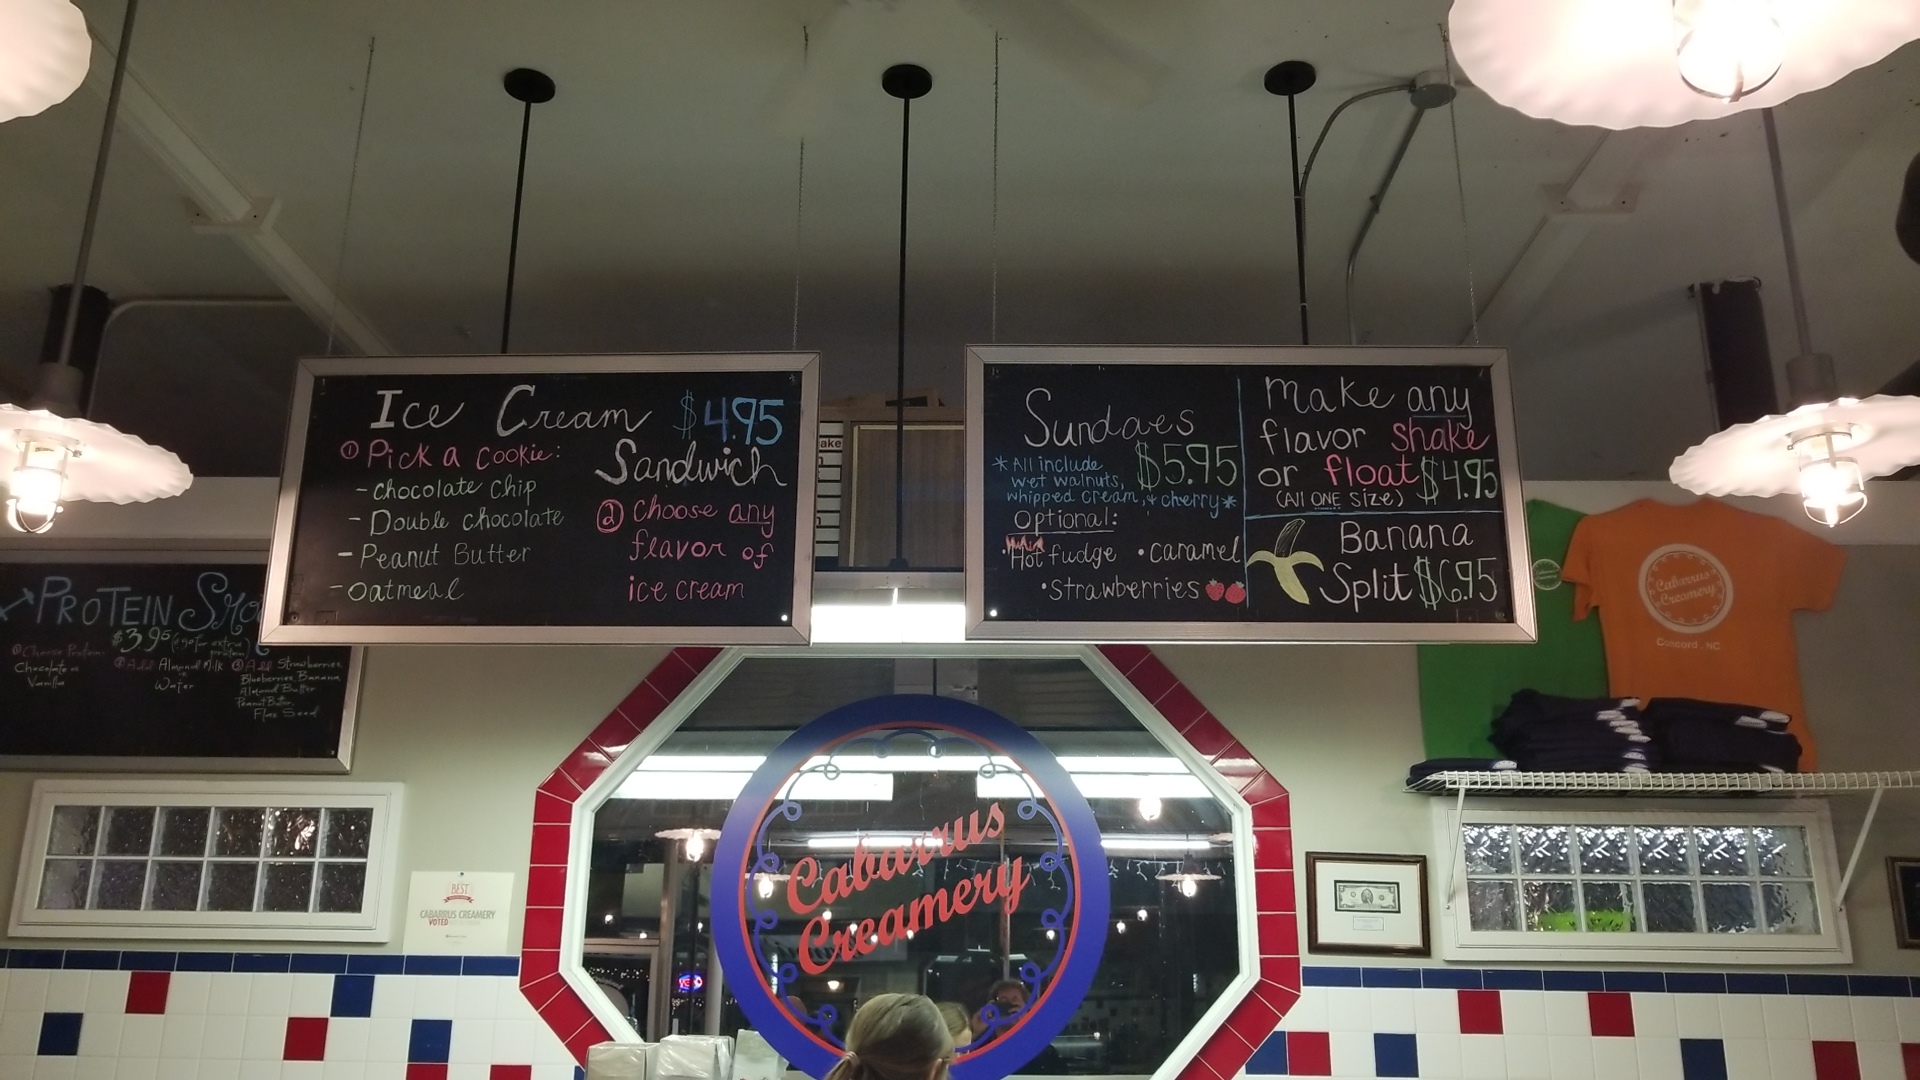 Ice Cream $4.95
Sandwich
① Pick a cookie:
- chocolate chip
- Double chocolate
- Peanut Butter
- Oatmeal
② Choose any
flavor of
ice cream
Sundaes
$5.95
*All include
wet walnuts,
whipped cream, & cherry*
Optional:
•Hot fudge •caramel
•Strawberries
Make any
flavor shake
or float $4.95
(All ONE SIZE)
Banana
Split $6.95
PROTEIN
$3.95
① Choose Protein:
Chocolate or
Vanilla
② Add Almond Milk
or
Water
③ Add Strawberries,
Blueberries, Banana,
Almond Butter
Peanut Butter,
Flax Seed
Cabarrus
Creamery
Concord, NC
Cabarrus
Creamery
BEST
CABARRUS CREAMERY
VOTED